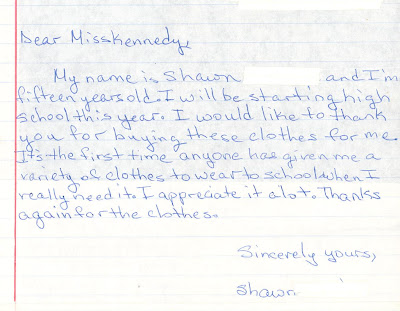 Dear Miss Kennedy,
My name is Shawn and I'm
fifteen years old. I will be starting high
school this year. I would like to thank
you for buying these clothes for me.
It's the first time anyone has given me a
variety of clothes to wear to school when I
really need it. I appreciate it alot. Thanks
again for the clothes.
Sincerely yours,
Shawn